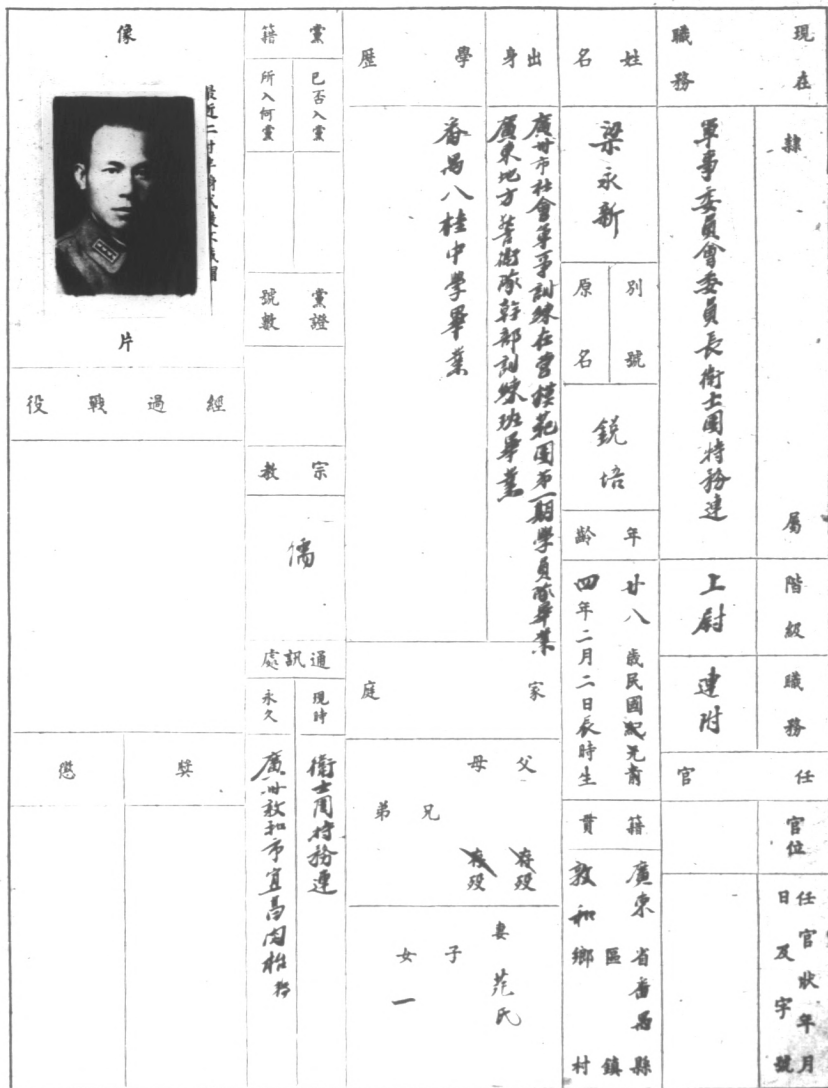 現在職務
隸屬
軍事委員會委員長衛士團特務連
階級
上尉
職務
連附
任官
官位
任官狀年月日及字號
姓名
梁永新
別號
原名
銳培
年齡
廿八歲民國紀元前
四年二月二日長時生
籍貫
廣東省番禺縣
區鎮
敦和鄉村
出身
廣州市社會軍事訓練在營模范團第一期學員隊畢業
廣東地方警衛隊幹部訓練班畢業
學歷
番禺八桂中學畢業
家庭
父存歿
母存歿
兄弟
妻范氏
子
女一
黨籍
已否入黨
所入何黨
黨證號數
宗教
儒
通訊處
現時
衛士團特務連
永久
廣州敦和市宜昌
像片
最近二寸半
經過戰役
獎
懲